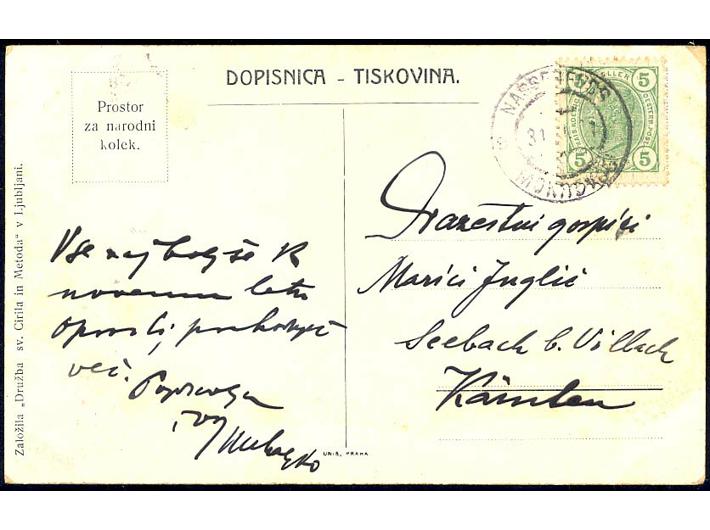 DOPISNICA - TISKOVINA.
Prostor
za narodni
kolek.
Založila „Družba sv. Cirila in Metoda" v Ljubljani.
NASSENFUSS
31
MOKRONOG
HELLER
5
5
5
Vse najboljše k
novemu letu
oprosti,
več.
Dražestni gospici
Marici Juglič
Seebach b. Villach
Kärnten
UNIE, PRAHA